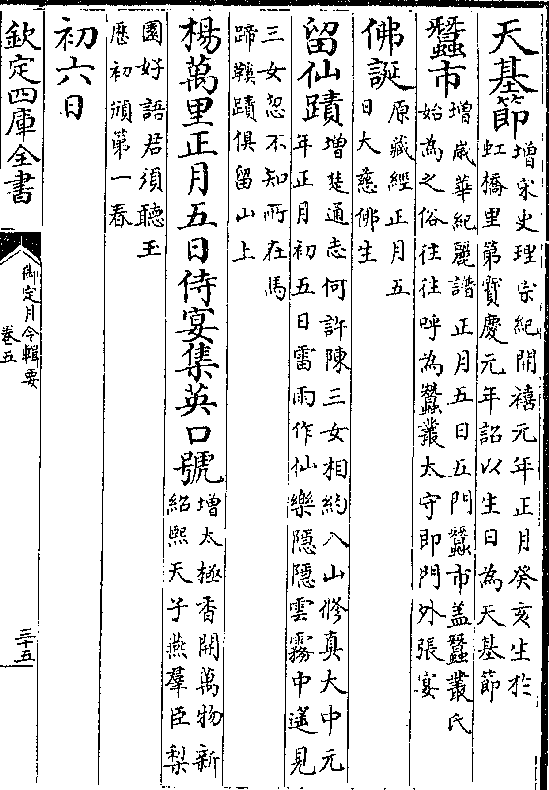 天基節增宋史理宗紀開禧元年正月癸亥生於
虹橋里第寶慶元年詔以生日為天基節
蠶市增歲華紀麗譜正月五日五門蠶市盖蠶叢氏
始為之俗往往呼為蠶叢太守即門外張宴
佛誕原藏經正月五
日大慈佛生
留仙蹟增楚通志何許陳三女相約入山修真大中元
年正月初五日雷雨作仙樂隱隱雲霧中遥見
三女忽不知所在馬
蹄輭蹟俱留山上
楊萬里正月五日侍宴集英口號增太極香開萬物新
紹熙天子燕羣臣梨
園好語君須聽玉
厯初頒第一春
初六日
欽定四庫全書
御定月令輯要
卷五
三十五